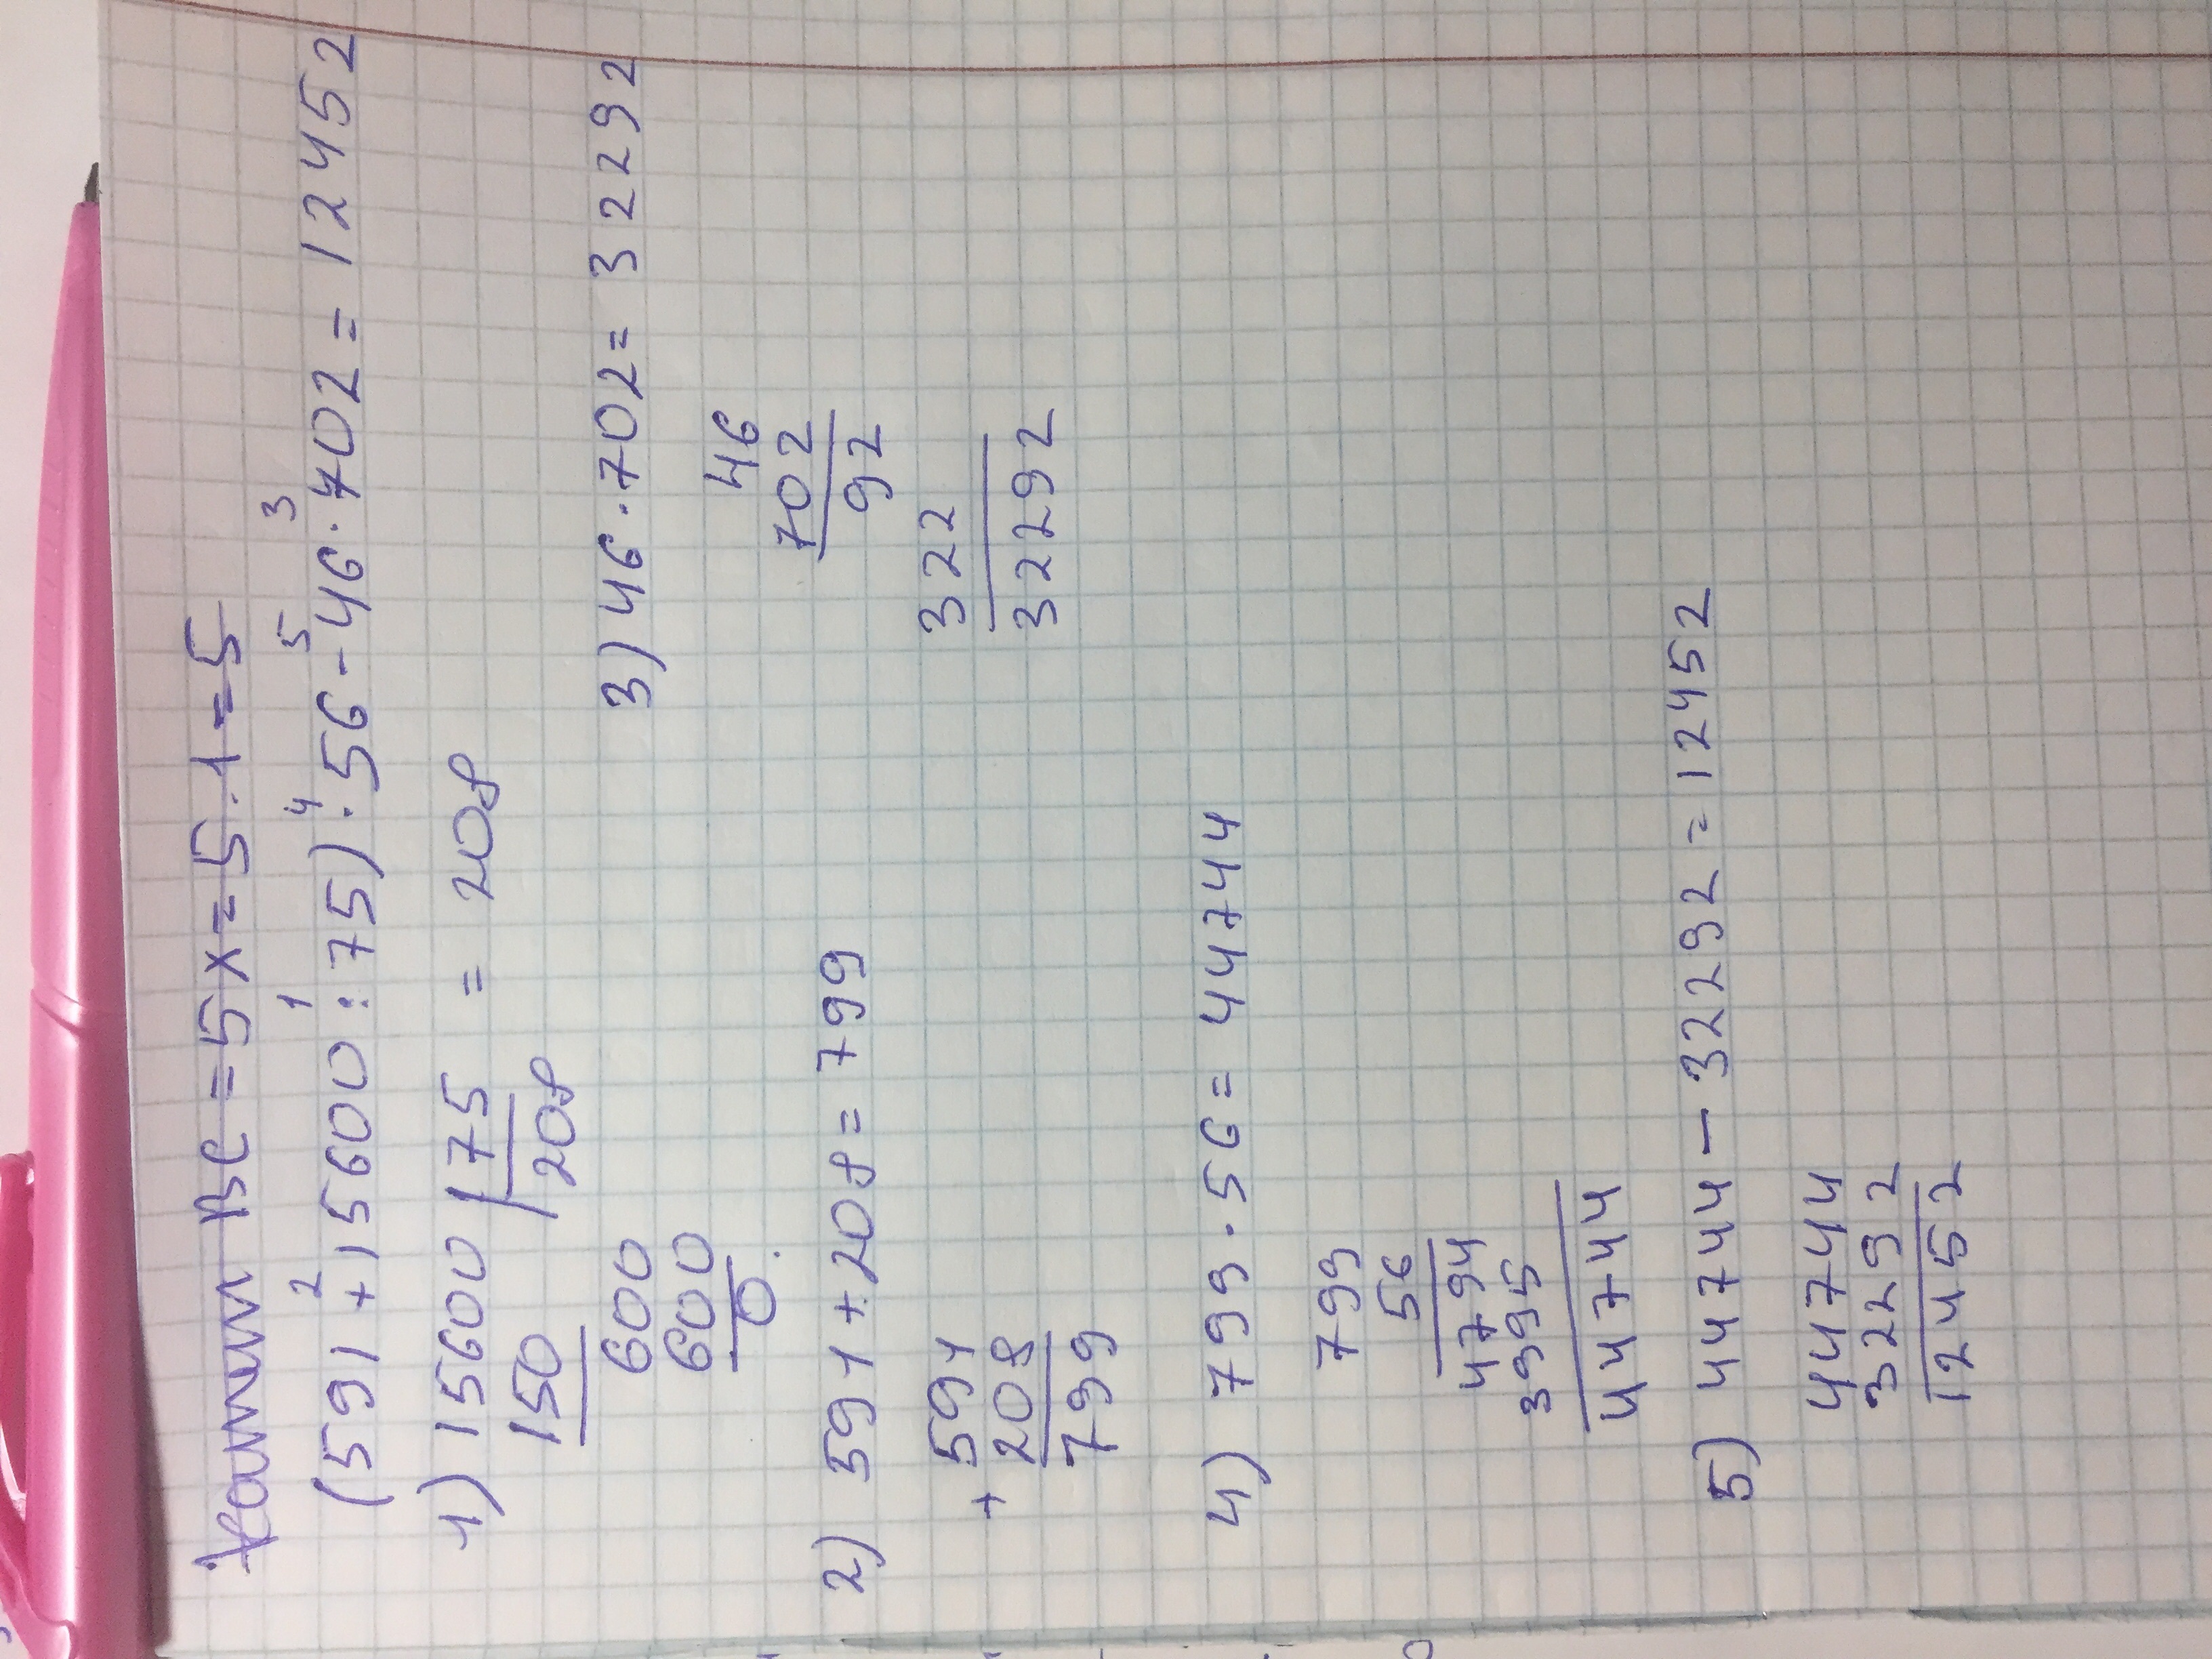 ВС = 5х = 5 · 1 = 5
(591 + 15600 : 75) · 56 - 46 · 702 = 12452
2 1 4 5 3
1) 15600 | 75 = 208
150 208
600
600
0
2) 591 + 208 = 799
+ 591
208
799
3) 46 · 702 = 32292
46
702
92
322
32292
4) 799 · 56 = 44744
799
56
4794
3995
44744
5) 44744 - 32292 = 12452
44744
32292
12452